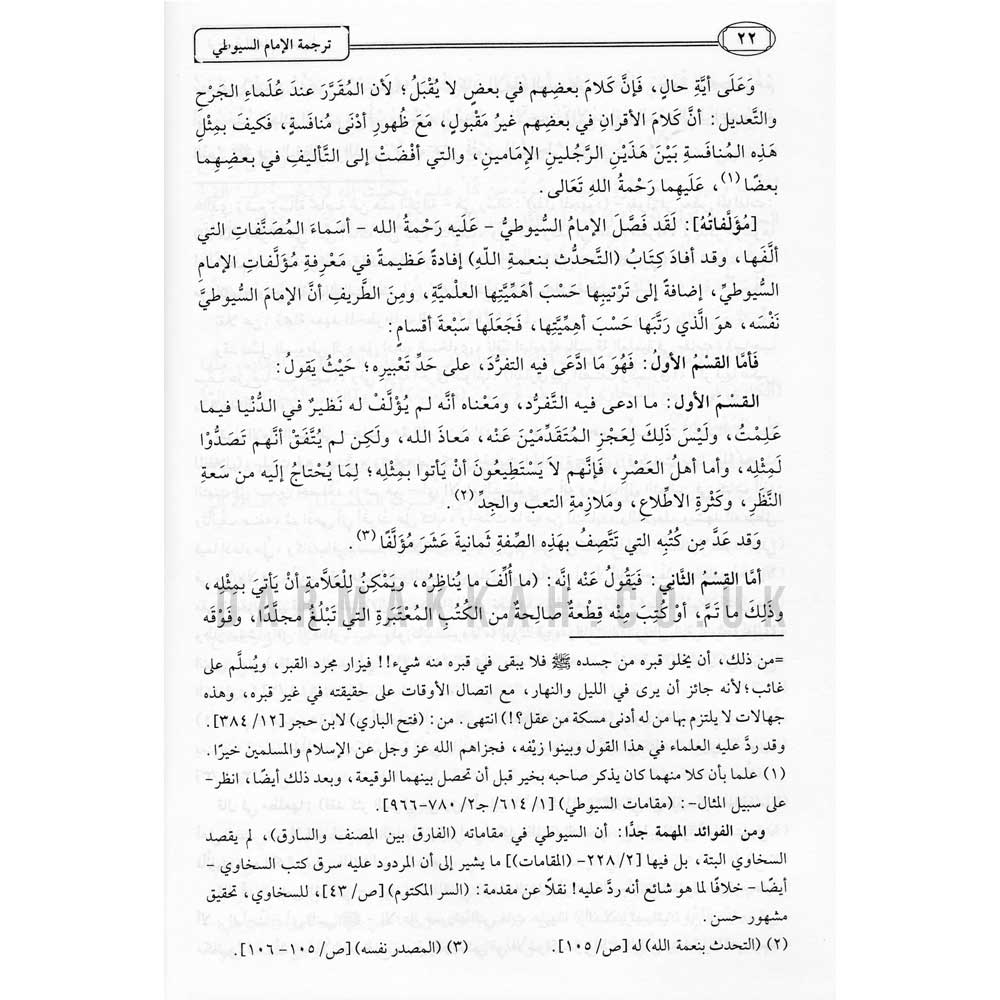 ٢٢
ترجمة الإمام السيوطي
وَعَلَى أيَّةِ حالٍ، فَإنَّ كَلامَ بعضِهم في بعضٍ لا يُقْبَلُ؛ لأن المُقَرَّرَ عندَ عُلَماءِ الجَرْحِ
والتَّعديل: أنَّ كَلامَ الأقرانِ في بعضِهم غيرُ مَقْبولٍ، مَعَ ظُهورِ أدْنَى مُنافَسةٍ، فَكيفَ بمِثْلِ
هَذِه المُنافَسةِ بَيْنَ هَذَيْنِ الرَّجُلينِ الإمَامينِ، والتي أفْضَتْ إلى التَّأليفِ في بعضِهِما
بعضًا (١)، عَلَيهِما رَحْمةُ اللهِ تَعَالى.
[مُؤَلَّفاتُهُ]: لَقَد فَصَّلَ الإمامُ السُّيوطيُّ - عَلَيه رَحْمةُ الله - أسمَاءَ المُصَنَّفاتِ التي
ألَّفَها، وقد أفادَ كِتابُ (التَّحدُّث بنعمةِ اللهِ) إفادةً عَظيمةً في مَعْرِفةِ مُؤَلَّفاتِ الإمامِ
السُّيوطيِّ، إضافةً إلى تَرْتيبِها حَسْبَ أهَمِّيَّتِها العلْميَّةِ، ومِنَ الطَّريفِ أنَّ الإمامَ السُّيوطيَّ
نَفْسَه، هوَ الَّذي رَتَّبَها حَسْبَ أهِمِّيَّتِها، فَجَعَلَها سَبْعَةَ أقسامٍ:
فَأمَّا القسْمُ الأولُ: فَهُوَ مَا ادَّعَى فيه التفرُّدَ، على حَدِّ تَعْبيرِه؛ حيْثُ يَقولُ:
القِسْمَ الأول: مـا ادعى فيـه التَّفرُّد، ومَعْناه أنَّه لـم يُؤَلَّفْ لـه نَظيرٌ في الدُّنْيا فيمـا
عَلِمْتُ، ولَيْسَ ذَلِكَ لِعَجْزِ المُتَقَدِّمَيْنَ عَنْه، مَعَاذَ الله، ولَكِن لـم يُتَّفَقْ أنَّهم تَصَدُّوْا
لَمِثْلِه، وأما أهلُ العَصْرِ، فَإنَّهم لاَ يَسْتَطِيعُونَ أنْ يَأتوا بمِثْلِه؛ لِمَا يُحْتاجُ إلَيه من سَعَةِ
النَّظَرِ، وكَثْرةِ الاطِّلاعِ، ومَلازِمةِ التعب والجِدِّ (٢).
وَقد عَدَّ مِن كُتُبِه التي تَتَّصِفُ بهَذِه الصِّفةِ ثَمانيةَ عَشَرَ مُؤَلَّفًا (٣).
أمَّا القِسْمُ الثَّاني: فَيَقُولُ عَنْهُ إنَّه: (ما أُلِّفَ ما يُناظِرُه، ويَمْكِنُ لِلْعَلاَّمةِ أنْ يَأتيَ بمِثْلِه،
وذَلِكَ ما تَمَّ، أوْ كُتِبَ مِنْه قِطْعةٌ صالِحةٌ من الكُتُبِ المُعْتَبَرةِ التي تَبْلُغُ مجلَّدًا، وفَوْقَه
DARMAKKAH.CO.UK
=من ذلك، أن يخلو قبره من جسده ﷺ فلا يبقى في قبره منه شيء!! فيزار مجرد القبر، ويُسلَّم على
غائب؛ لأنه جائز أن يرى في الليل والنهار، مع اتصال الأوقات على حقيقته في غير قبره، وهذه
جهالات لا يلتزم بها من له أدنى مسكة من عقل؟!) انتهى. من: (فتح الباري) لابن حجر [١٢/ ٣٨٤].
وقد ردَّ عليه العلماء في هذا القول وبينوا زيْفه، فجزاهم الله عز وجل عن الإسلام والمسلمين خيرًا.
(١) علما بأن كلا منهما كان يذكر صاحبه بخير قبل أن تحصل بينهما الوقيعة، وبعد ذلك أيضًا، انظر-
على سبيل المثال-: (مقامات السيوطي) [١/ ٦١٤/ جـ٢/ ٧٨٠-٩٦٦].
ومن الفوائد المهمة جدًّا: أن السيوطي في مقاماته (الفارق بين المصنف والسارق)، لم يقصد
السخاوي البتة، بل فيها [٢/ ٢٢٨- (المقامات)] ما يشير إلى أن المردود عليه سرق كتب السخاوي -
أيضًا - خلافًا لما هو شائع أنه ردَّ عليه! نقلاً عن مقدمة: (السر المكتوم) [ص/ ٤٣]، للسخاوي، تحقيق
مشهور حسن.
(٢) (التحدث بنعمة الله) له [ص/ ١٠٥]. (٣) (المصدر نفسه) [ص/ ١٠٥- ١٠٦].